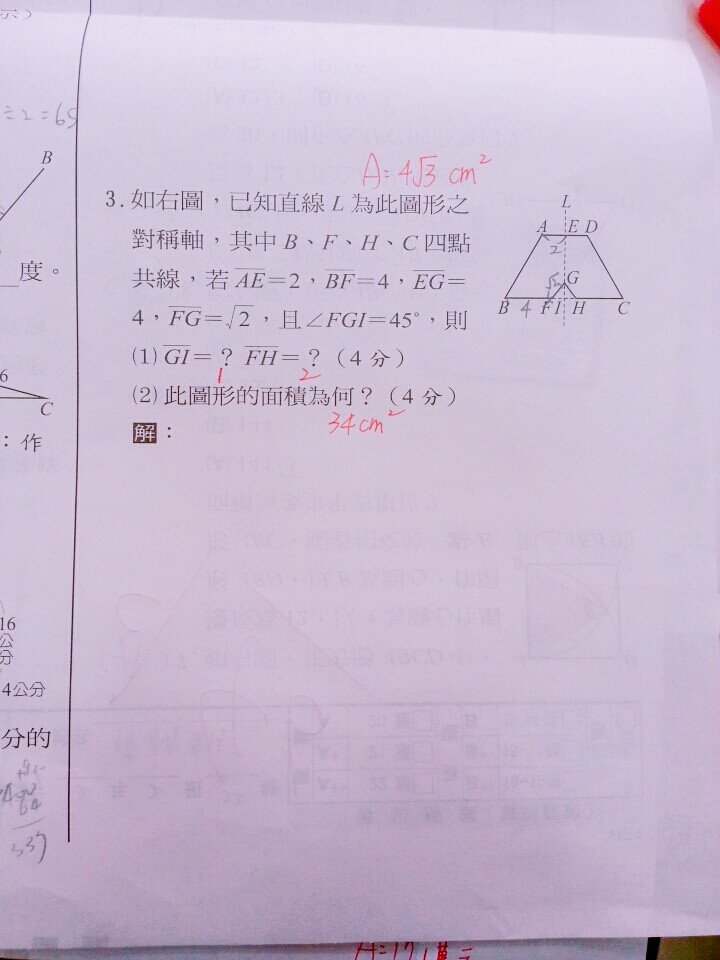 示)
÷2=65
B
度。
6
C
：作
16
公
分
4公分
分的
A=4√3 cm²
3. 如右圖，已知直線 L 為此圖形之
對稱軸，其中 B、F、H、C 四點
共線，若 AE=2，BF=4，EG=
4，FG=√2，且∠FGI=45°，則
(1) GI=？ FH=？（4 分）
1 2
(2) 此圖形的面積為何？（4 分）
34 cm²
解：
L
A E D
2
√2 G
B 4 F I H C